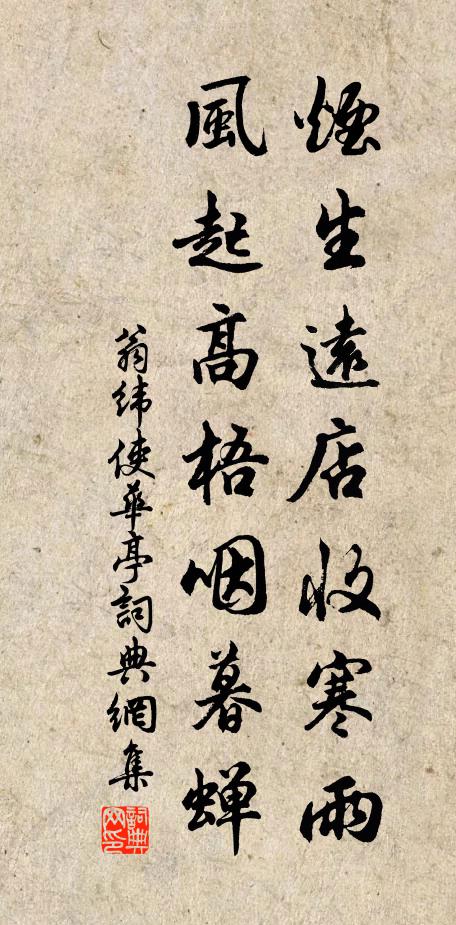 煙生遠店收寒雨
風起高梧咽暮蝉
翁緯使華亭詞典網集
詞典网印